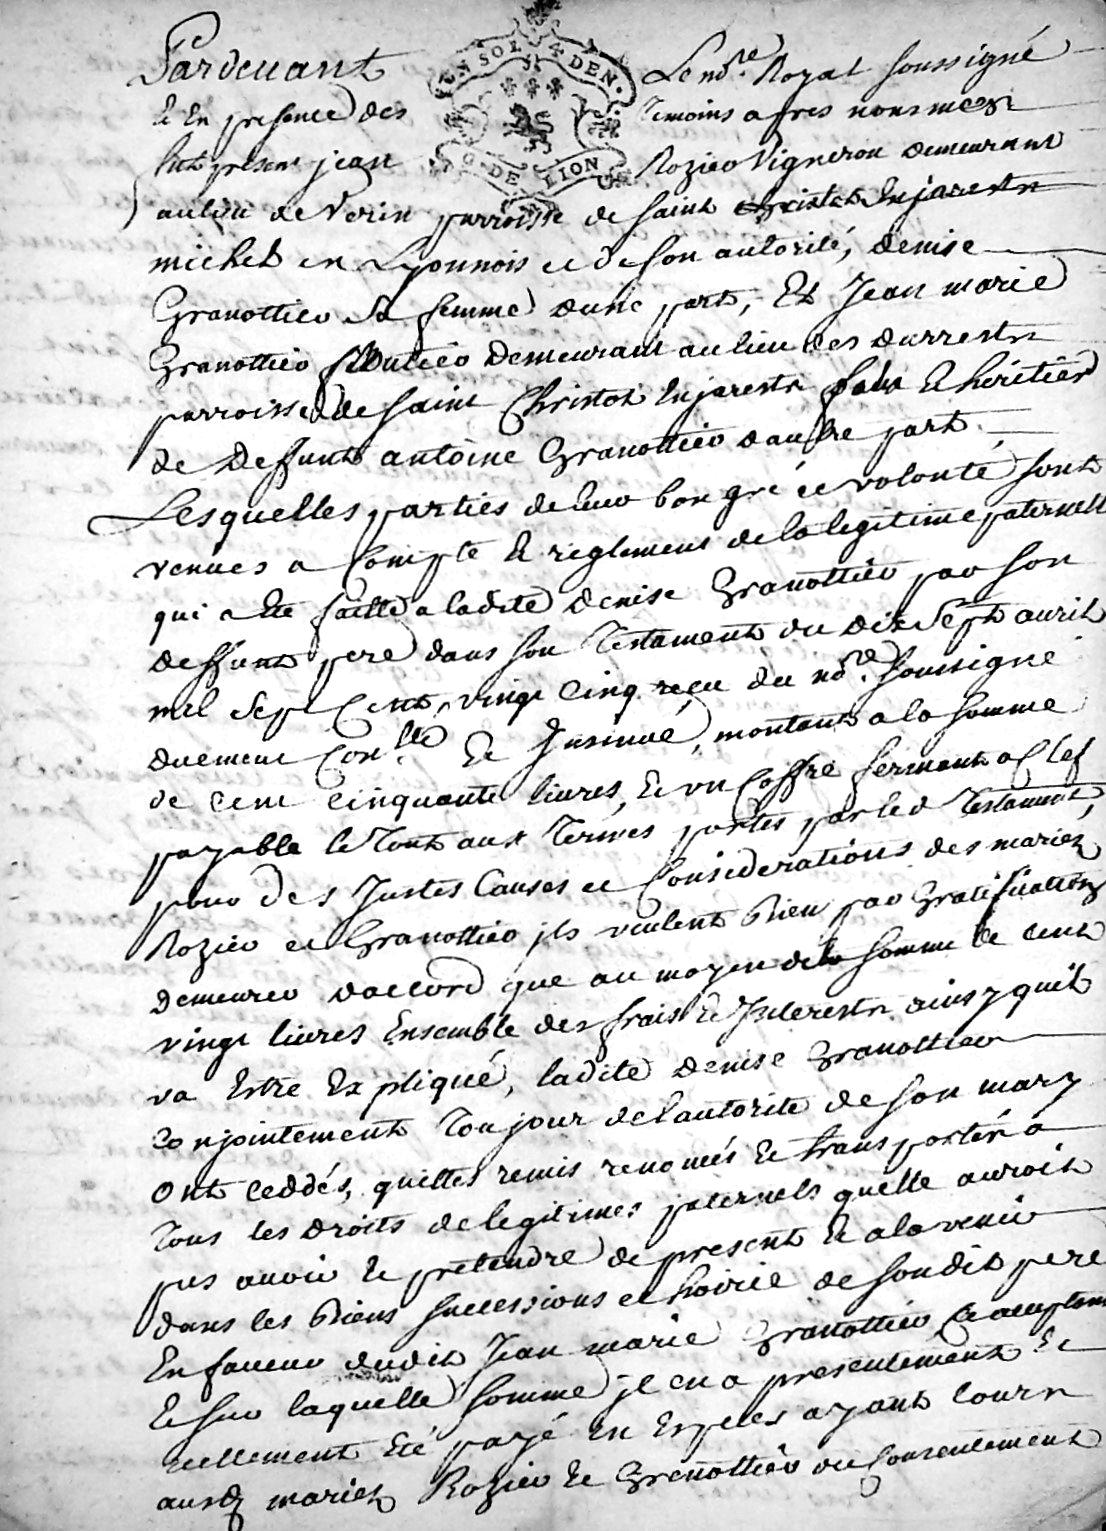 Pardevant Le no.re Royal soussigné
UN SOL 4 DEN.
G. DE LION
& En presence des Temoins apres nommez
fut present jean Rozier Vigneron demeurant
au lieu de Verin parroisse de saint Christot En jarestz
michel en Lyonnois et de son autorité, denise
Granottier sa femme d'une part, Et Jean marie
Granottier demeurant au lieu des
parroisse de saint Christot En jarestz fils & heritier
de deffunt antoine Granottier dautre part
Lesquelles parties de leur bon gré et volonté sont
venues a Compte & reglement de la legitime paternelle
qui a Eté faitte a ladite denise Granottier par son
deffunt pere dans son Testament du dix Sept avril
mil Sept Cent vingt Cinq reçu du no.re soussigné
duement Con.llé & Insinué, montant a la somme
de cent cinquante livres, & un Coffre fermant a Clef
payable le Tout aux Termes portés par led Testament,
pour des Justes Causes et Considerations des mariez
Rozier et Granottier ils veulent Bien par Gratification
demeurer daccord que au moyen de la somme de cent
vingt livres Ensemble des frais & Interestz ainsy quil
va Estre Expliqué, ladite denise Granottier
Conjointement Toujour de l'autorite de son mary
Ont Ceddés, quittés remis renoncés & transportéz a
Tous les droits de legitimes paternels quelle auroit
pus avoir & pretendre de present & a lavenir
dans les Biens successions et hoirie de son dit pere
En faveur dudit Jean marie Granottier
& sur laquelle somme il en a presentement &
reellement Eté payé En Especes ayant Cours
ausd mariez Rozier & Granottier du Consentement